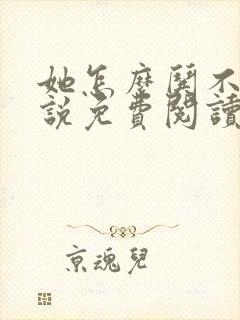 她怎麼鬨不
說免費閱讀
京魂兒